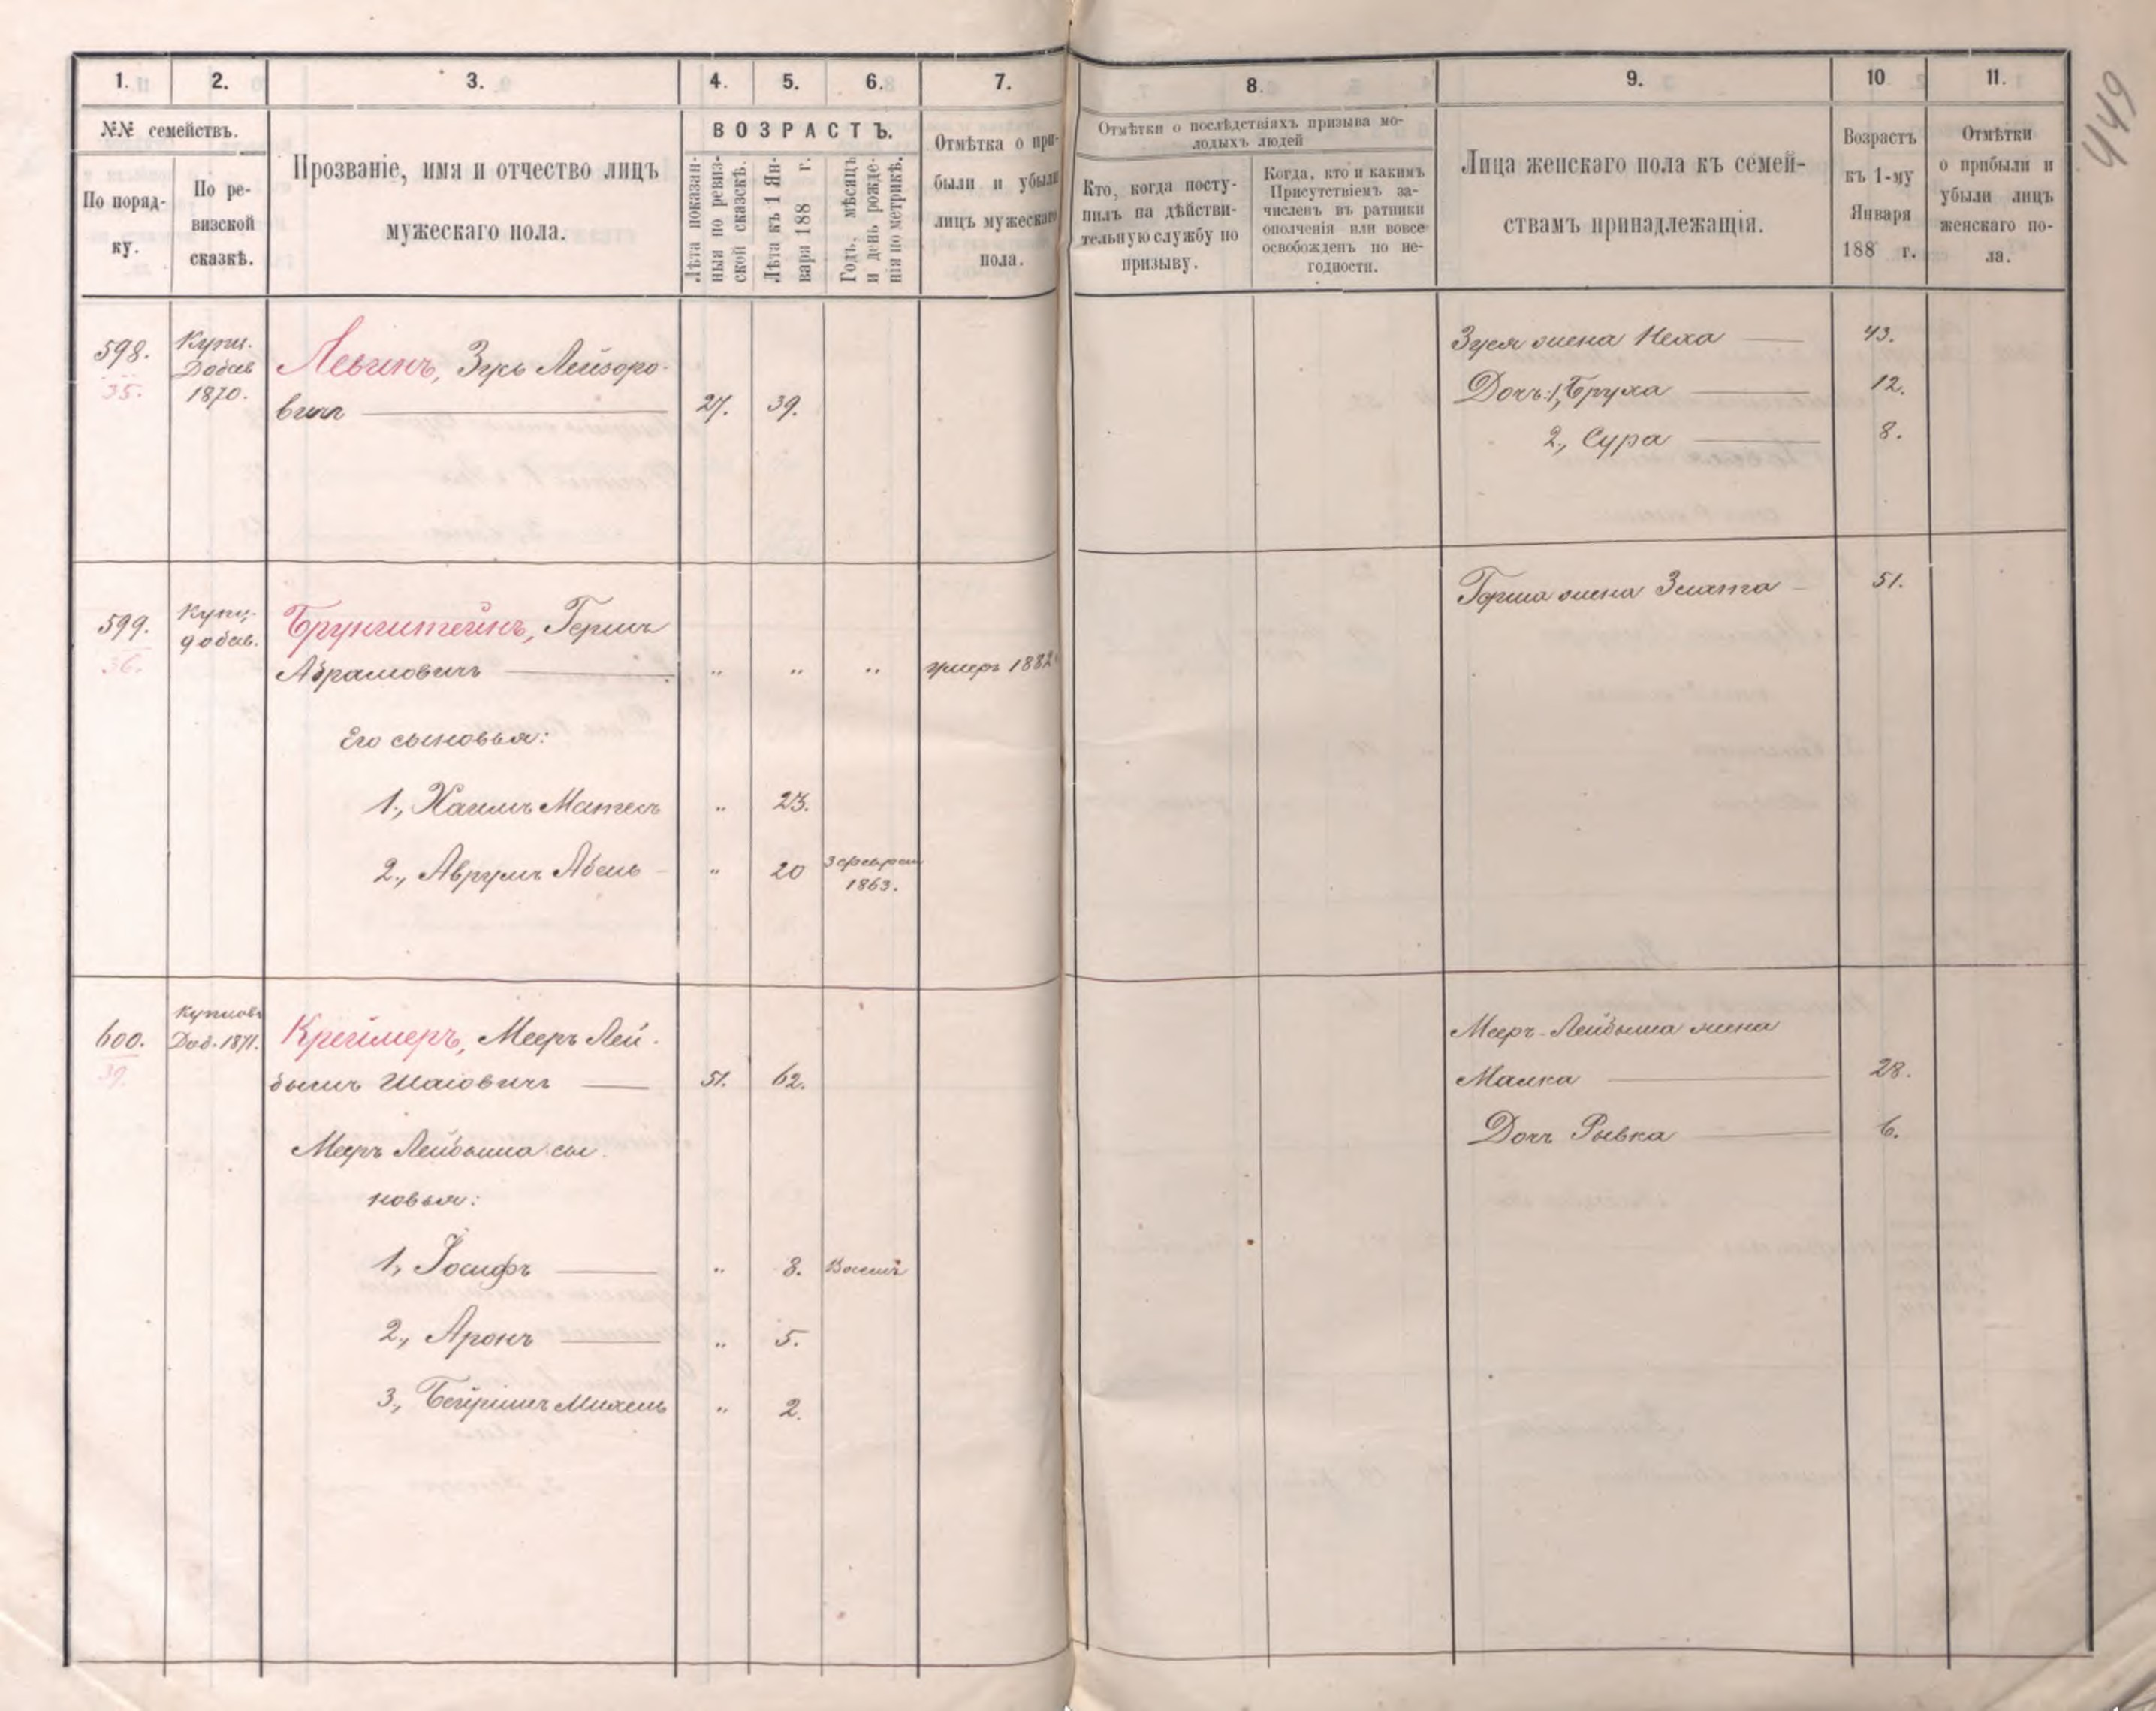 449
1. 2. 3. 4. 5. 6. 7. 8. 9. 10 11.
№№ семействъ.
По поряд-
ку.
По ре-
визской
сказкѣ.
Прозваніе, имя и отчество лицъ
мужескаго пола.
ВОЗРАСТЪ.
Лѣта показан-
ныя по ревиз-
ской сказкѣ.
Лѣта къ 1 Ян-
варя 188 г.
Годъ, мѣсяцъ
и день рожде-
нія по метрикѣ.
Отмѣтка о при-
были и убыли
лицъ мужескаго
пола.
Отмѣтки о послѣдствіяхъ призыва мо-
лодыхъ людей
Кто, когда посту-
пилъ на дѣйстви-
тельную службу по
призыву.
Когда, кто и какимъ
Присутствіемъ за-
численъ въ ратники
ополченія или вовсе
освобожденъ по не-
годности.
Лица женскаго пола къ семей-
ствамъ принадлежащія.
Возрастъ
къ 1-му
Января
188 г.
Отмѣтки
о прибыли и
убыли лицъ
женскаго по-
ла.
598.
35.
Купц.
Добав
1870.
Левинъ, Зусь Лейзоро-
вичъ 27. 39.
Зуся жена Неха 43.
Дочь: 1, Бруха 12.
2., Сура 8.
599.
36.
Купц.
добав.
Брунштейнъ, Гершъ
Абрамовичъ " " " умеръ 1882
Его сыновья:
1., Хаимъ Матесъ " 23.
2., Аврумъ Абель " 20 3 февраля
1863.
Герша жена Злата 51.
600.
39.
Купцовъ
Доб. 1871.
Креймеръ, Мееръ Лей-
бышъ Шаіовичъ 51. 62.
Мееръ Лейбыша сы-
новья:
1, Іосифъ " 8.
2., Аронъ " 5.
3., Бейришъ Михель " 2.
Мееръ-Лейбыша жена
Малка 28.
Дочь Рывка 6.